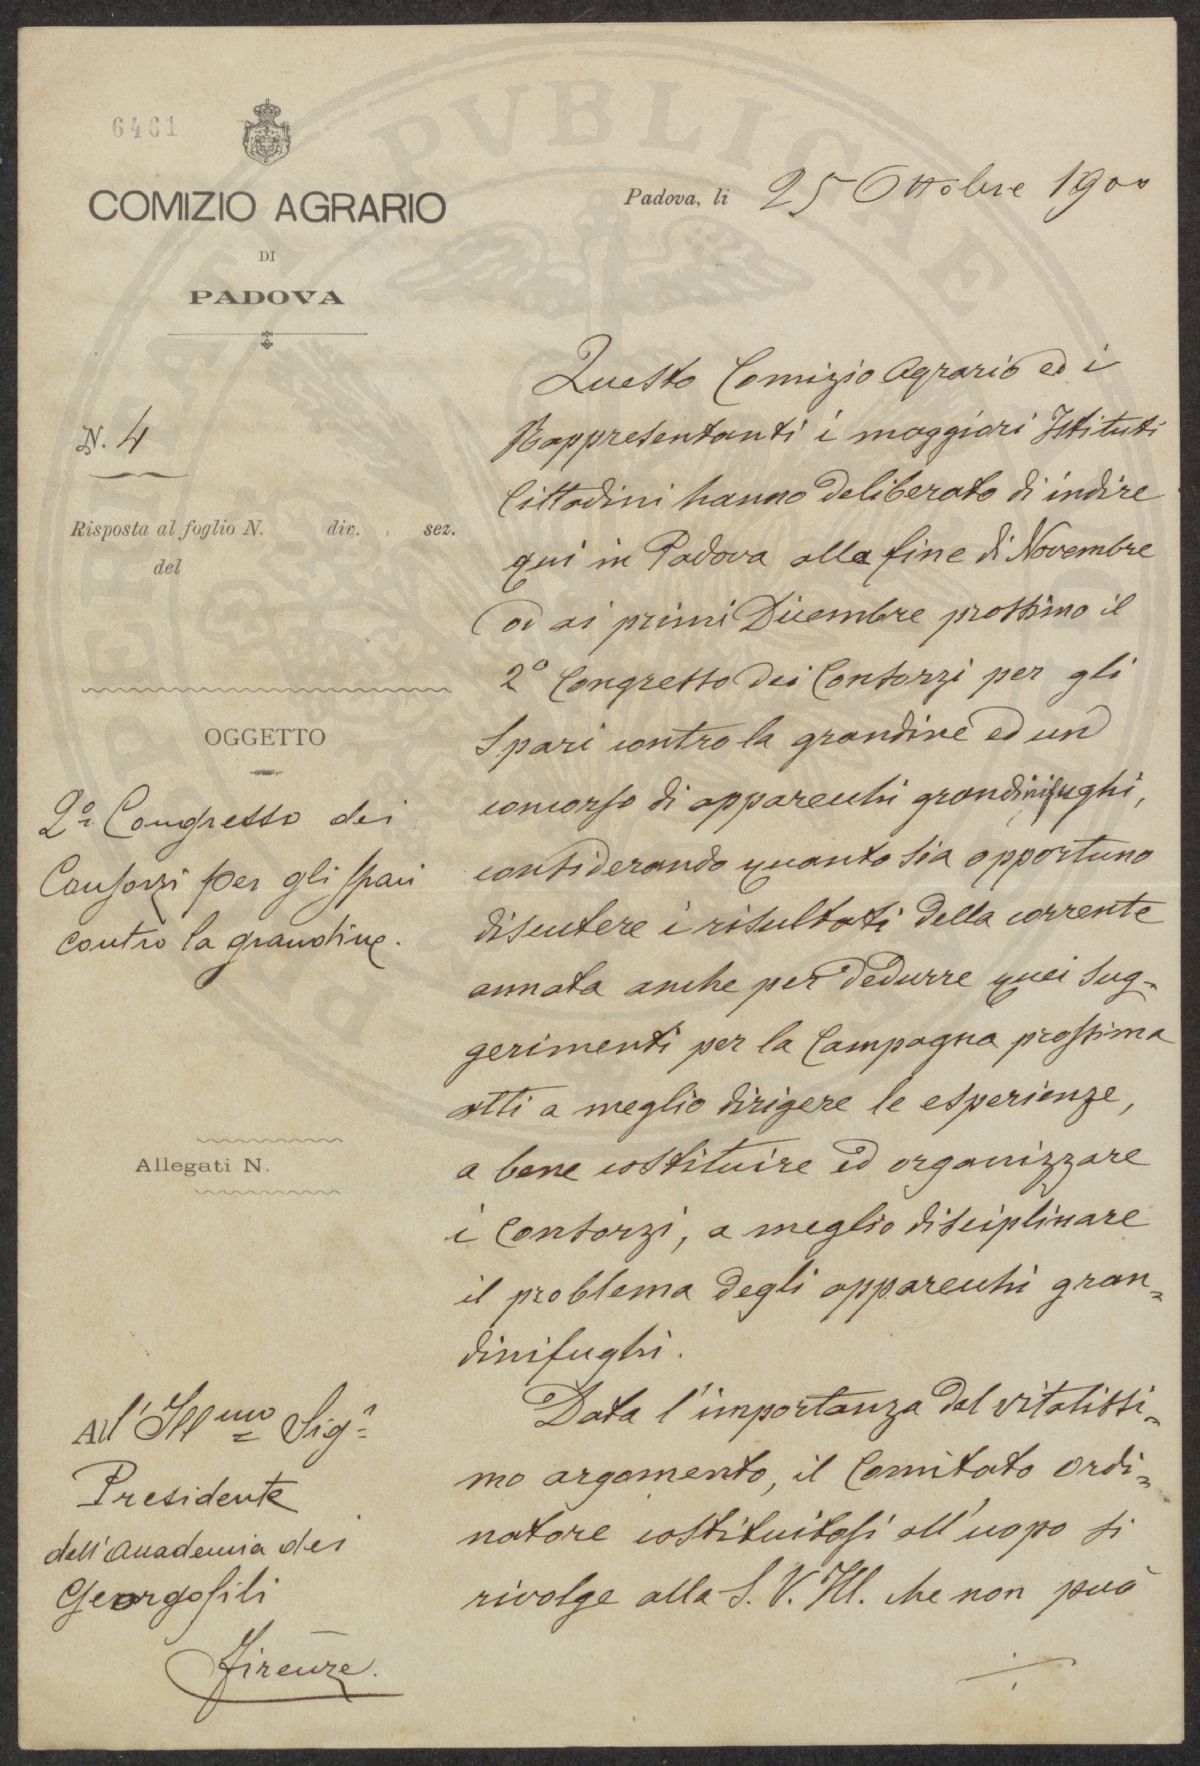 6461
COMIZIO AGRARIO
DI
PADOVA
Padova, li 25 Ottobre 1900
N. 4
Risposta al foglio N. div. sez.
del
OGGETTO
2º Congresso dei
Consorzi per gli spari
contro la grandine.
Allegati N.
All'Illmo Sigr
Presidente
dell'Accademia dei
Georgofili
Firenze.
Questo Comizio Agrario ed i
Rappresentanti i maggiori Istituti
Cittadini hanno deliberato di indire
qui in Padova alla fine di Novembre
od ai primi Dicembre prossimo il
2º Congresso dei Consorzi per gli
spari contro la grandine ed un
concorso di apparecchi grandinifughi,
considerando quanto sia opportuno
discutere i risultati della corrente
annata anche per dedurre quei sug-
gerimenti per la Campagna prossima
atti a meglio dirigere le esperienze,
a bene costituire ed organizzare
i Consorzi, a meglio disciplinare
il problema degli apparecchi gran-
dinifughi.
Data l'importanza del vitalissi-
mo argomento, il Comitato ordi-
natore costituitosi all'uopo si
rivolge alla S. V. Ill. che non può
PVBLICAE